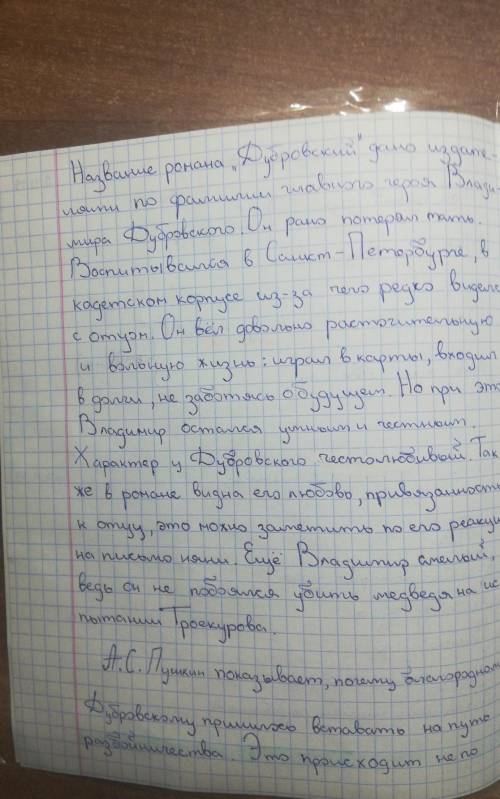 Название романа "Дубровский" дано издате
лями по фамилии главного героя Влади
мира Дубровского. Он рано потерял мать.
Воспитывался в Санкт-Петербурге, в
кадетском корпусе из-за чего редко виделся
с отцом. Он вёл довольно расточительную
и вольную жизнь: играл в карты, входил
в долги, не заботясь о будущем. Но при это
Владимир остался умным и честным.
Характер у Дубровского честолюбивый. Так
же в романе видна его любовь, привязанность
к отцу, это можно заметить по его реакции
на письмо няни. Ещё Владимир смелый,
ведь он не побоялся убить медведя на ис
пытании Троекурова.
А.С. Пушкин показывает, почему благородном
Дубровскому пришлось вставать на путь
разбойничества. Это происходит не по